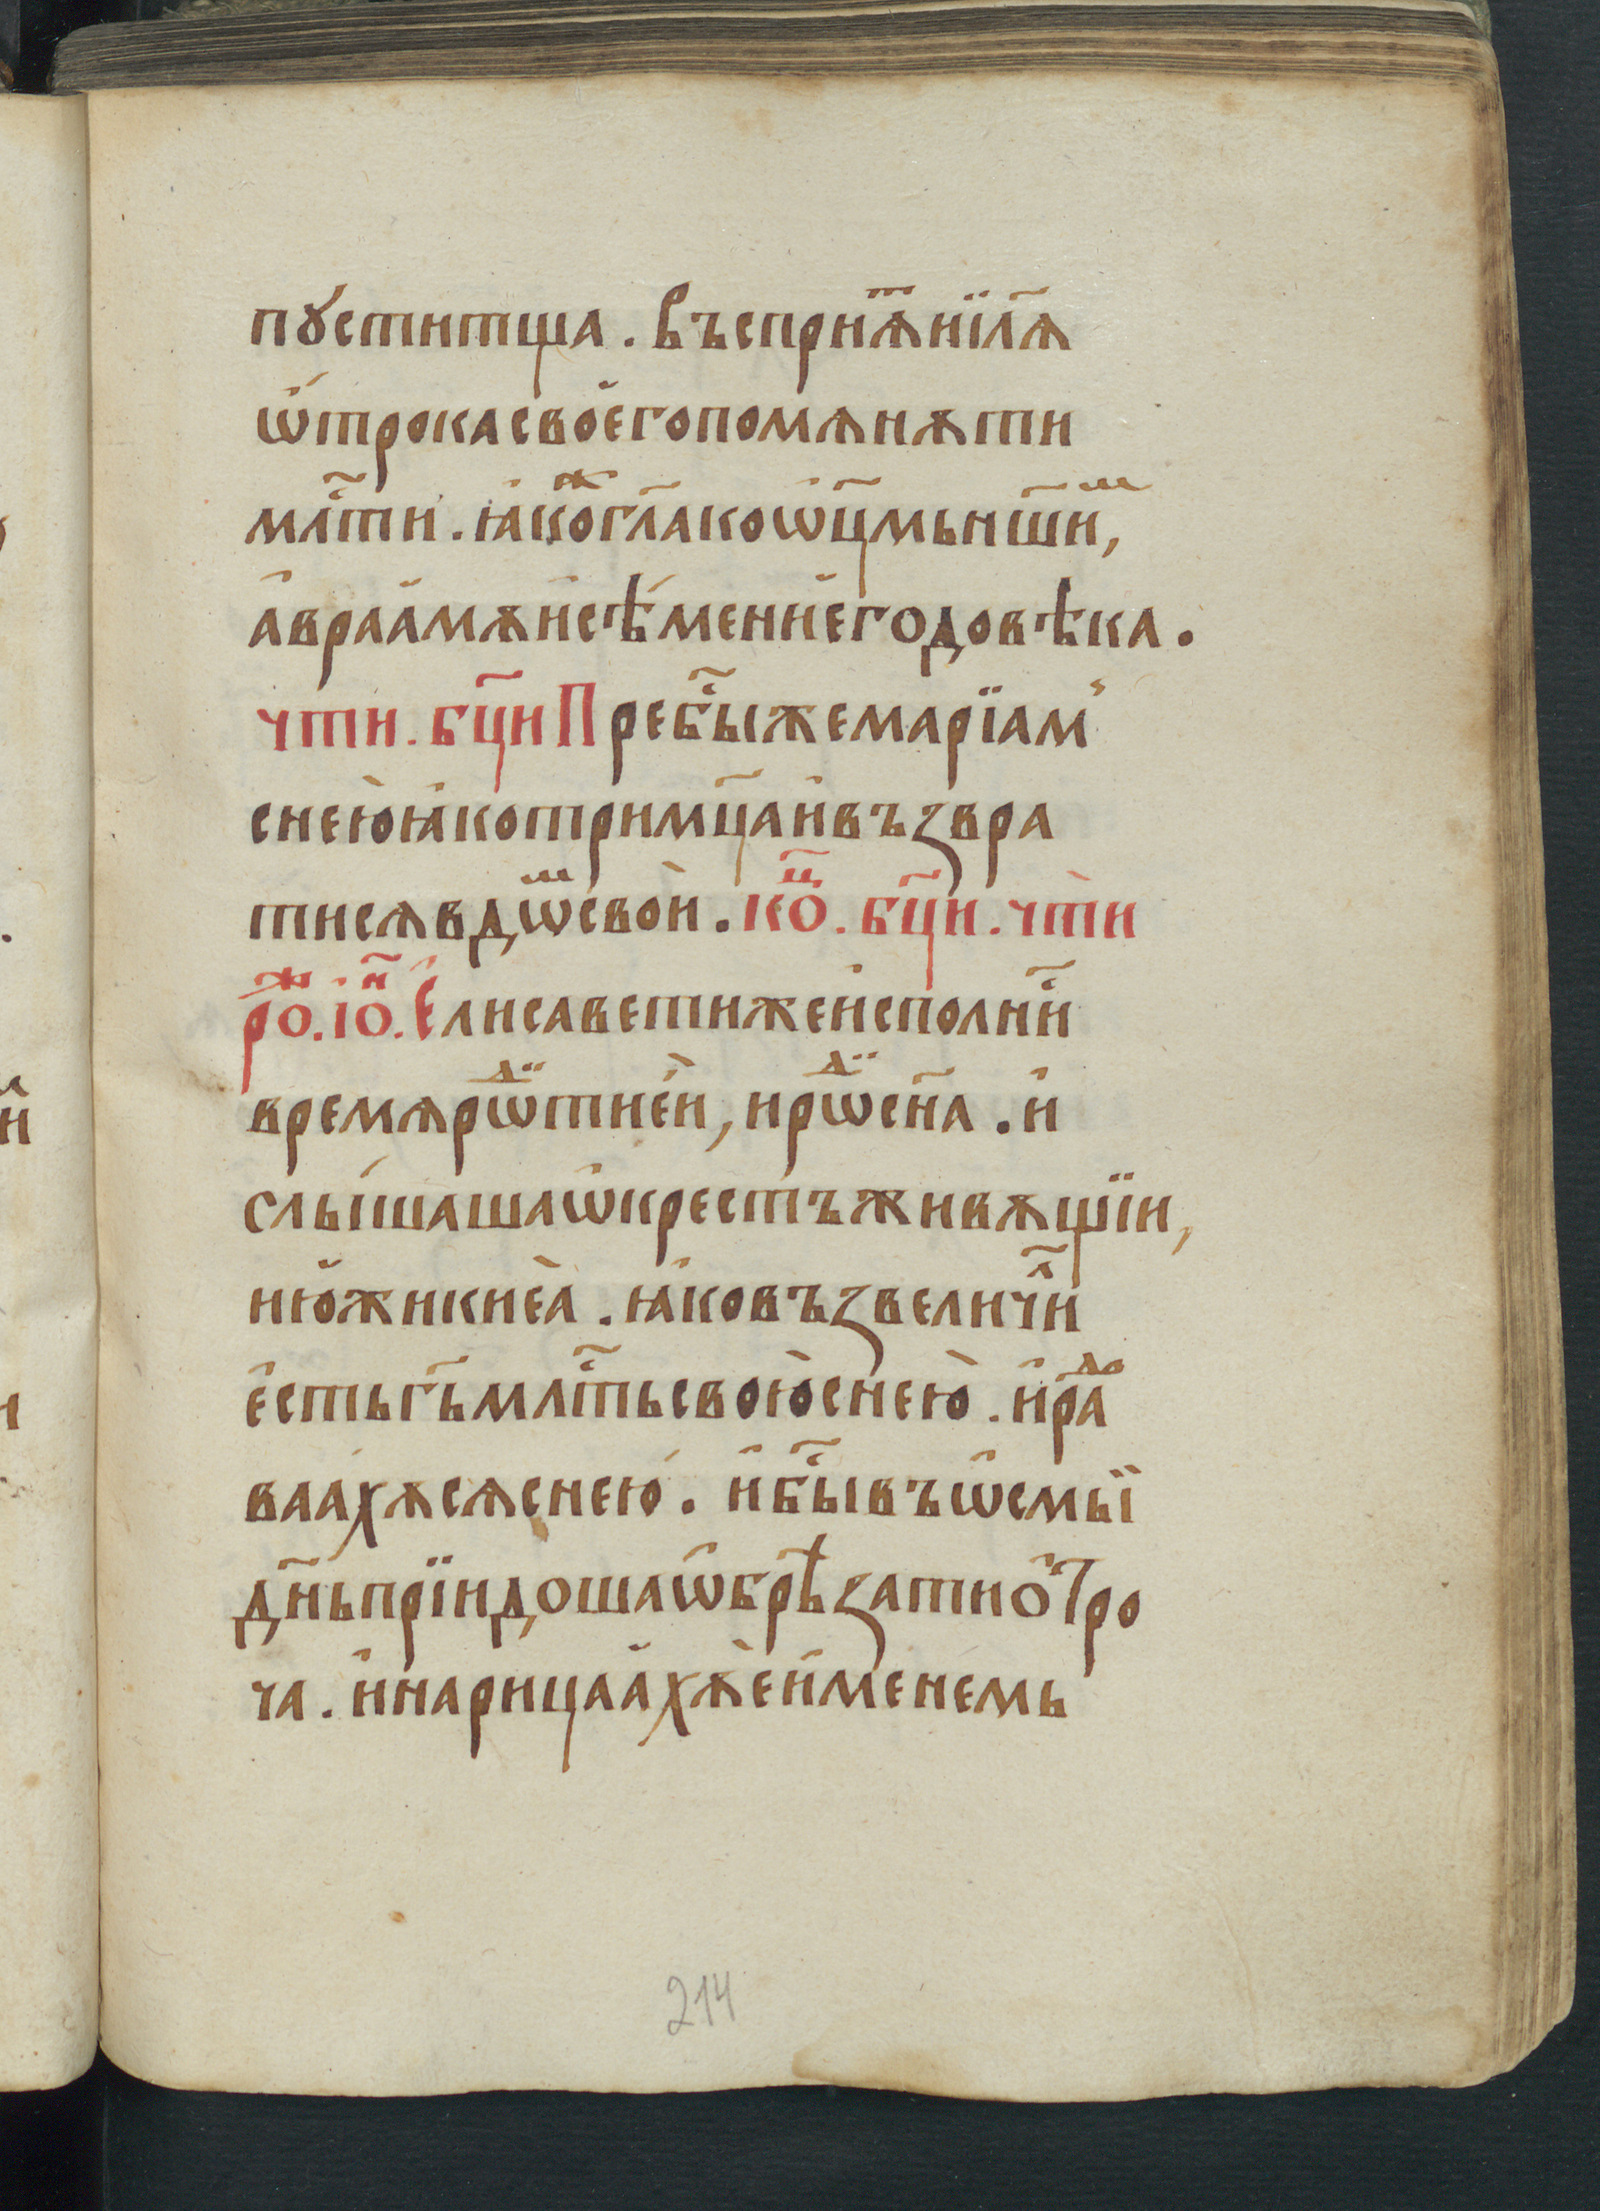 пꙋстит тща . въсприѧⷮ и҆ їл҃ѧ
ѿтрока своего помѧнѫти
млⷭ҇ти . ꙗкоⷤ гл҃а ко ѡц҃мь нш҃иⷨ ,
авраамѫ и сѣмени его до вѣка .
чти . бц҃и Пребыⷭ҇ же марїам
с нею ꙗко три мц҃а и възвра
тисѧ в дѡⷨ свои . кѡⷰ҇ . бц҃и . чти
роⷤ . іоⷩ҇ . Єлисавети же исполниⷭ҇
времѧ рѡⷣти еи , и рѡⷣ сн҃а . и
слышаша ѡкрестъ живѫщїи ,
и южики еа . ꙗко възвеличиⷧ҇
есть гь҃ млⷭ҇ть свою с нею . и раⷣ
ваахѫсѧ с нею . и быⷭ҇ въ ѡсмыї
дн҃ь прїидоша ѡбрѣзати отро
ча . и нарицаахѫ е именемь
214